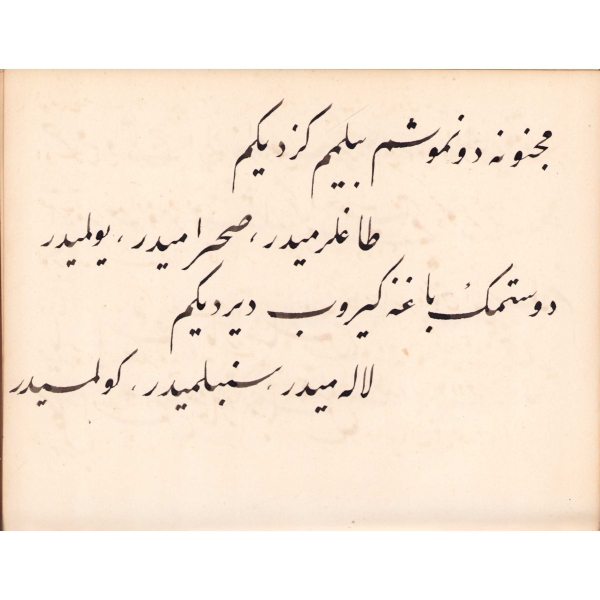 مجنونه دونموشم بیلمم کزدیکم
طاغلرمیدر، صحرامیدر، یولمیدر
دوستمک باغنه کیروب دیردیکم
لاله میدر، سنبلمیدر، کولمیدر